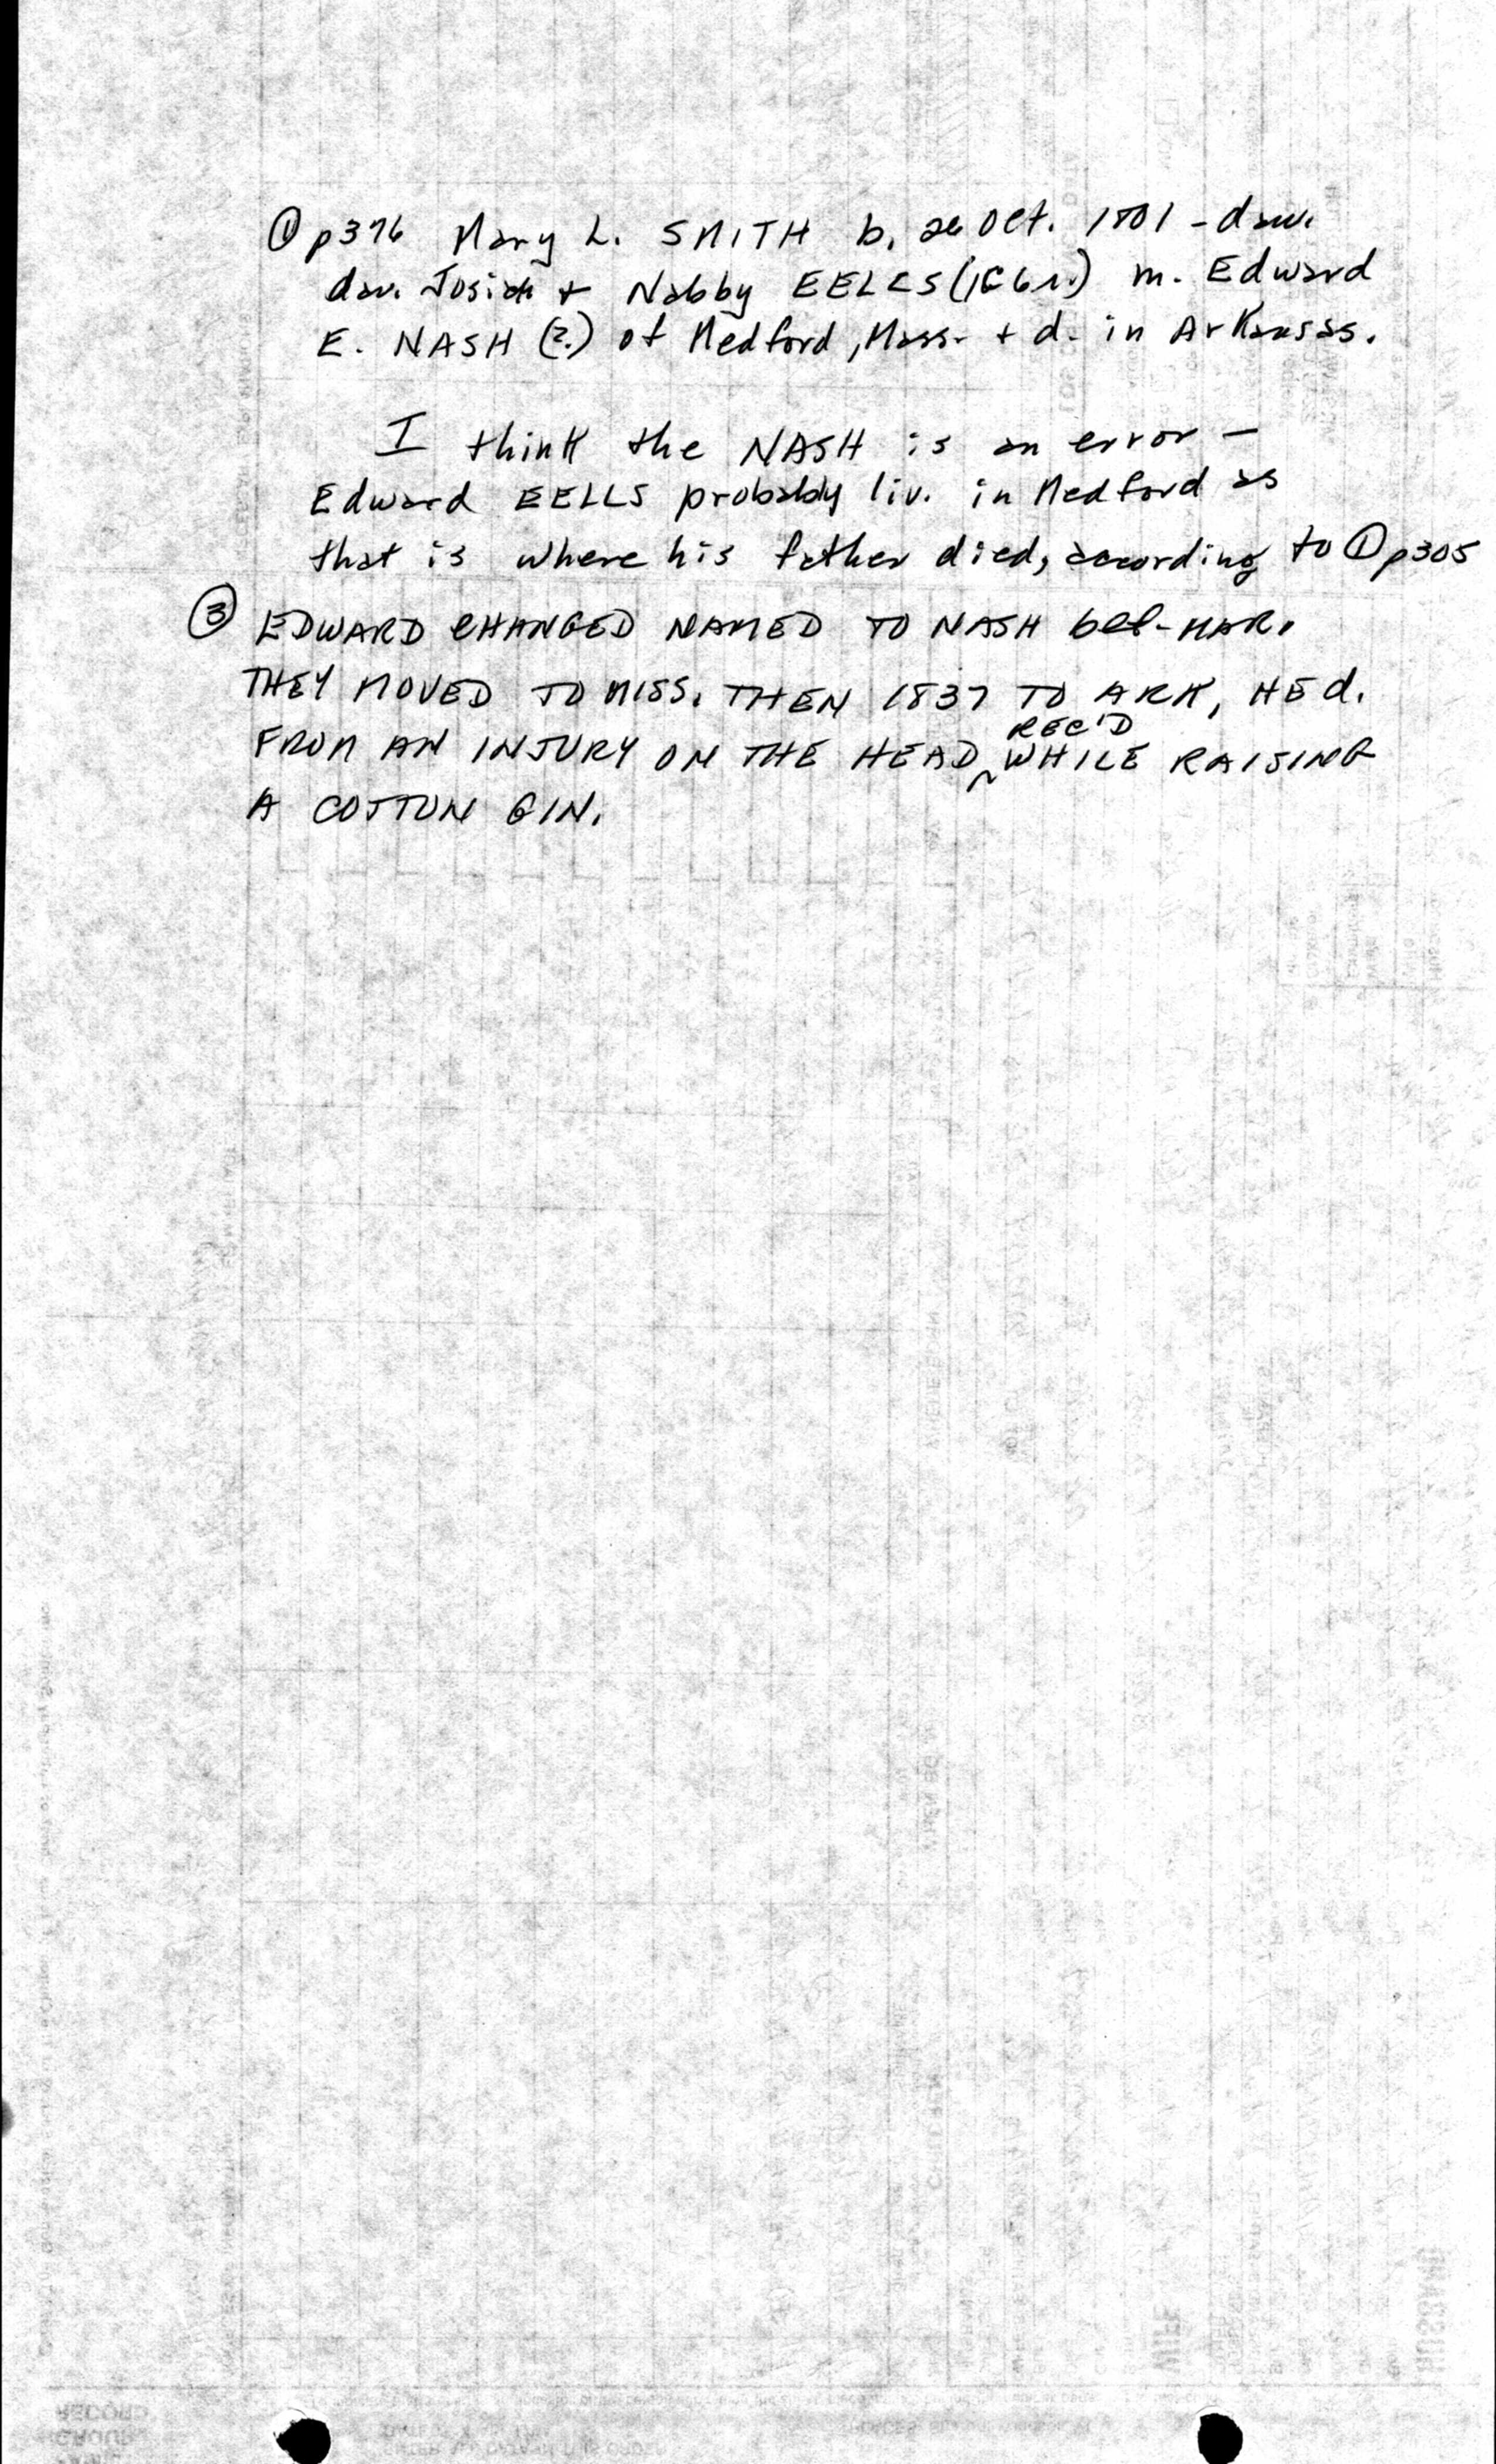 ① p376 Mary L. SMITH b. 26 Oct. 1801 - dau.
dau. Josiah + Nabby EELLS ( ) m. Edward
E. NASH (?) of Medford, Mass. + d. in Arkansas.
I think the NASH is an error -
Edward EELLS probably liv. in Medford as
that is where his father died, according to ① p305
③ EDWARD CHANGED NAMED TO NASH bef-MAR.
THEY MOVED TO MISS. THEN 1837 TO ARK, HE d.
REC'D
FROM AN INJURY ON THE HEAD ^ WHILE RAISING
A COTTON GIN.